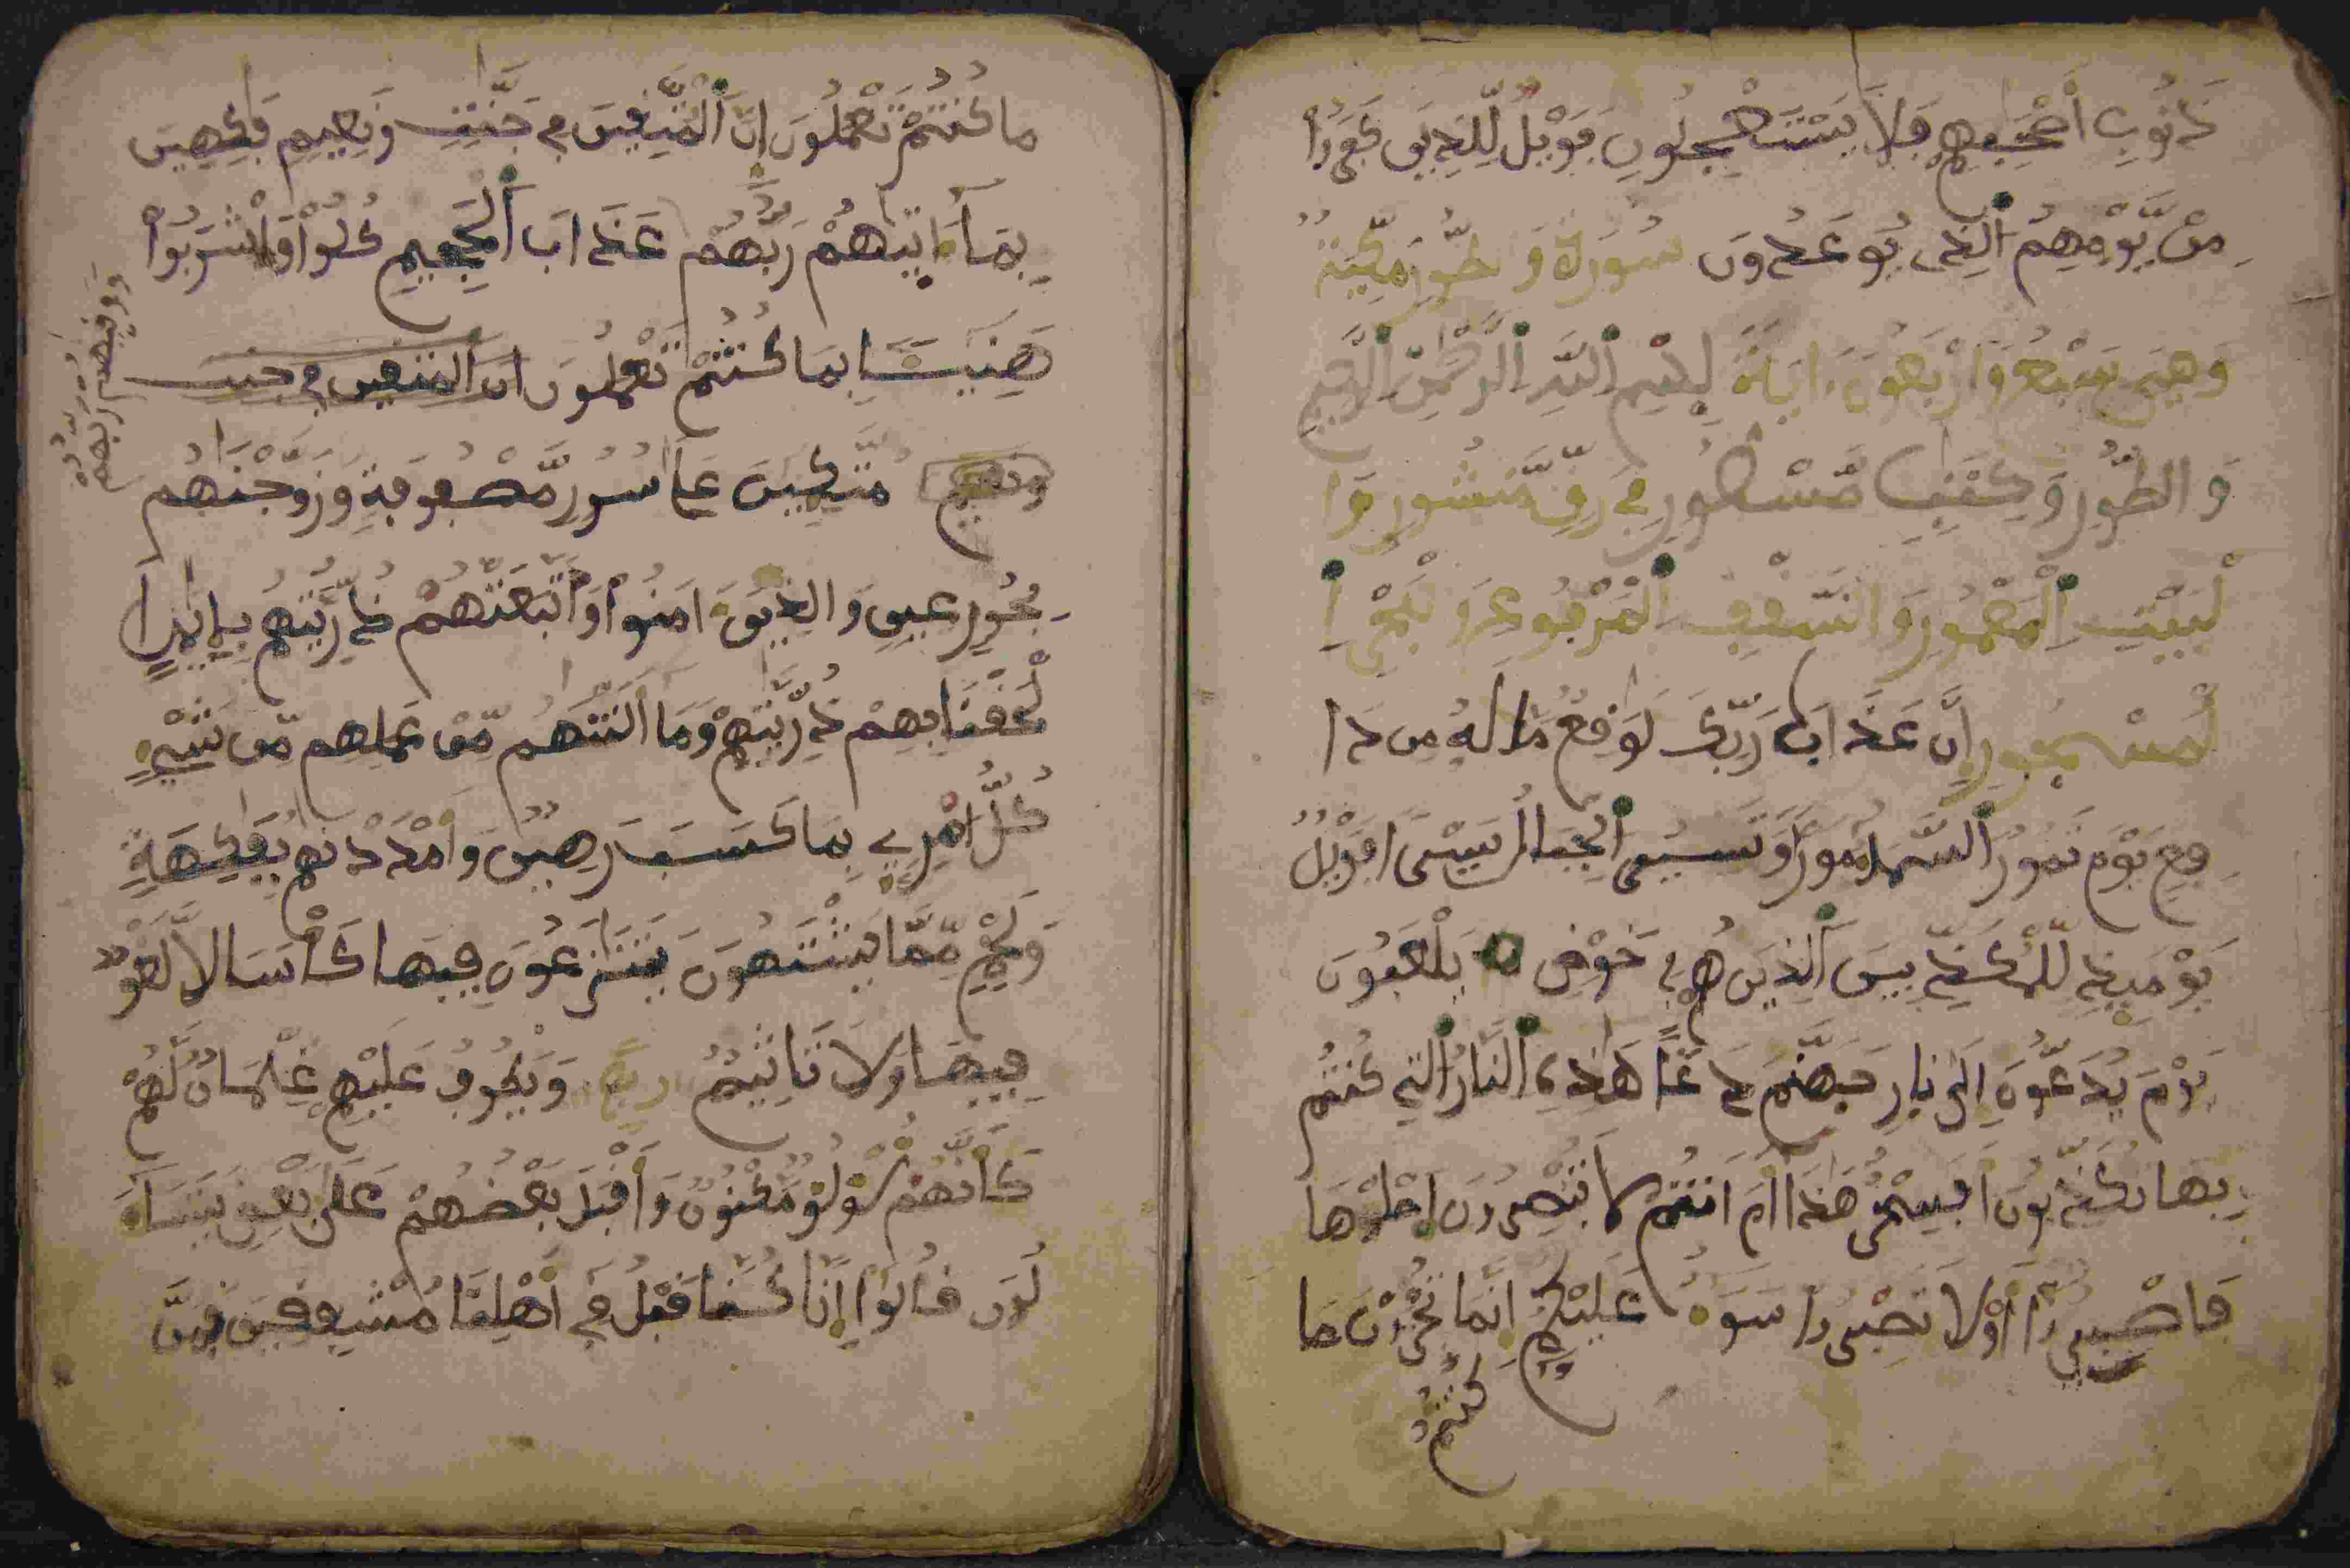 ذَنُوبِ أَصْحَٰبِهِمْ فَلَا يَسْتَعْجِلُونِ فَوَيْلٌ لِّلذِينَ كَفَرُوا
مِنْ يَّوْمِهِمُ الذِى يُوعَدُونَ سُورَةُ وَطُّورِ مَكِّيَّةٌ
وَهِىَ سَبْعٌ وَأَرْبَعُونَ ايَاةً بِسْمِ اللَّهِ الرَّحْمَٰنِ الرَّحِيمِ
وَالطُّورِ وَكِتَٰبٍ مَّسْطُورٍ فِى رَقٍّ مَّنشُورٍ وَا
لْبَيْتِ الْمَعْمُورِ وَالسَّقْفِ الْمَرْفُوعِ وَالْبَحْرِ ا
لْمَسْجُورِ إِنَّ عَذَابَ رَبِّكَ لَوَٰقِعٌ مَّا لَهُ مِن دَا
فِعٍ يَوْمَ تَمُورُ السَّمَاءُ مَوْرًا وَتَسِيرُ الْجِبَالُ سَيْرًا فَوَيْلٌ
يَوْمَئِذٍ لِّلْمُكَذِّبِينَ الذِينَ هُمْ فِى خَوْضٍ يَلْعَبُونَ
يَوْمَ يُدَعُّونَ إِلَىٰ نَارِ جَهَنَّمَ دَعًّا هَٰذِهِ النَّارُ التِى كُنتُم
بِهَا تُكَذِّبُونَ أَفَسِحْرٌ هَٰذَا أَمَ انتُمْ لَا تُبْصِرُونَ اصْلَوْهَا
فَاصْبِرُوا أَوْ لَا تَصْبِرُوا سَوَاءٌ عَلَيْكُمُ إِنَّمَا تُجْزَوْنَ مَا
كُنتُمْ
مَا كُنتُمْ تَعْمَلُونَ إِنَّ الْمُتَّقِينَ فِى جَنَّٰتٍ وَنَعِيمٍ فَٰكِهِينَ
بِمَا ءَاتَىٰهُمْ رَبُّهُمْ عَذَابَ الْجَحِيمِ كُلُوا وَاشْرَبُوا
وَوَقَىٰهُمْ رَبُّهُمْ
هَنِيئًا بِمَا كُنتُمْ تَعْمَلُونَ ان المتقين فى جنت
ونعيم مُتَّكِئِينَ عَلَىٰ سُرُرٍ مَّصْفُوفَةٍ وَزَوَّجْنَٰهُم
بِحُورٍ عِينٍ وَالذِينَ ءَامَنُوا وَاتَّبَعَتْهُمْ ذُرِّيَّتُهُم بِإِيمَٰنٍ ا
لْحَقْنَا بِهِمْ ذُرِّيَّتَهُمْ وَمَا أَلَتْنَٰهُم مِّنْ عَمَلِهِم مِّن شَىْءٍ
كُلُّ امْرِىٍ بِمَا كَسَبَ رَهِينٌ وَأَمْدَدْنَٰهُم بِفَٰكِهَةٍ
وَلَحْمٍ مِّمَّا يَشْتَهُونَ يَتَنَٰزَعُونَ فِيهَا كَأْسًا لَّا لَغْوٌ
فِيهَا وَلَا تَاثِيمٌ ربع وَيَطُوفُ عَلَيْهِمْ غِلْمَانٌ لَّهُمْ
كَأَنَّهُمْ لُؤْلُؤٌ مَّكْنُونٌ وَأَقْبَلَ بَعْضُهُمْ عَلَىٰ بَعْضٍ يَتَسَاءَ
لُونَ قَالُوا إِنَّا كُنَّا قَبْلُ فِى أَهْلِنَا مُشْفِقِينَ فَمَنَّ